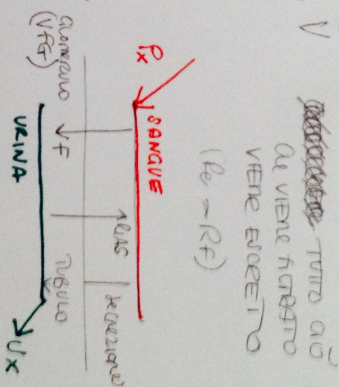 V
TUTTO CIÒ
CHE VIENE FILTRATO
VIENE ESCRETO
Px
SANGUE
GLOMERULO
(VFG)
F
RIAS
SECREZIONE
TUBULO
URINA
Ux